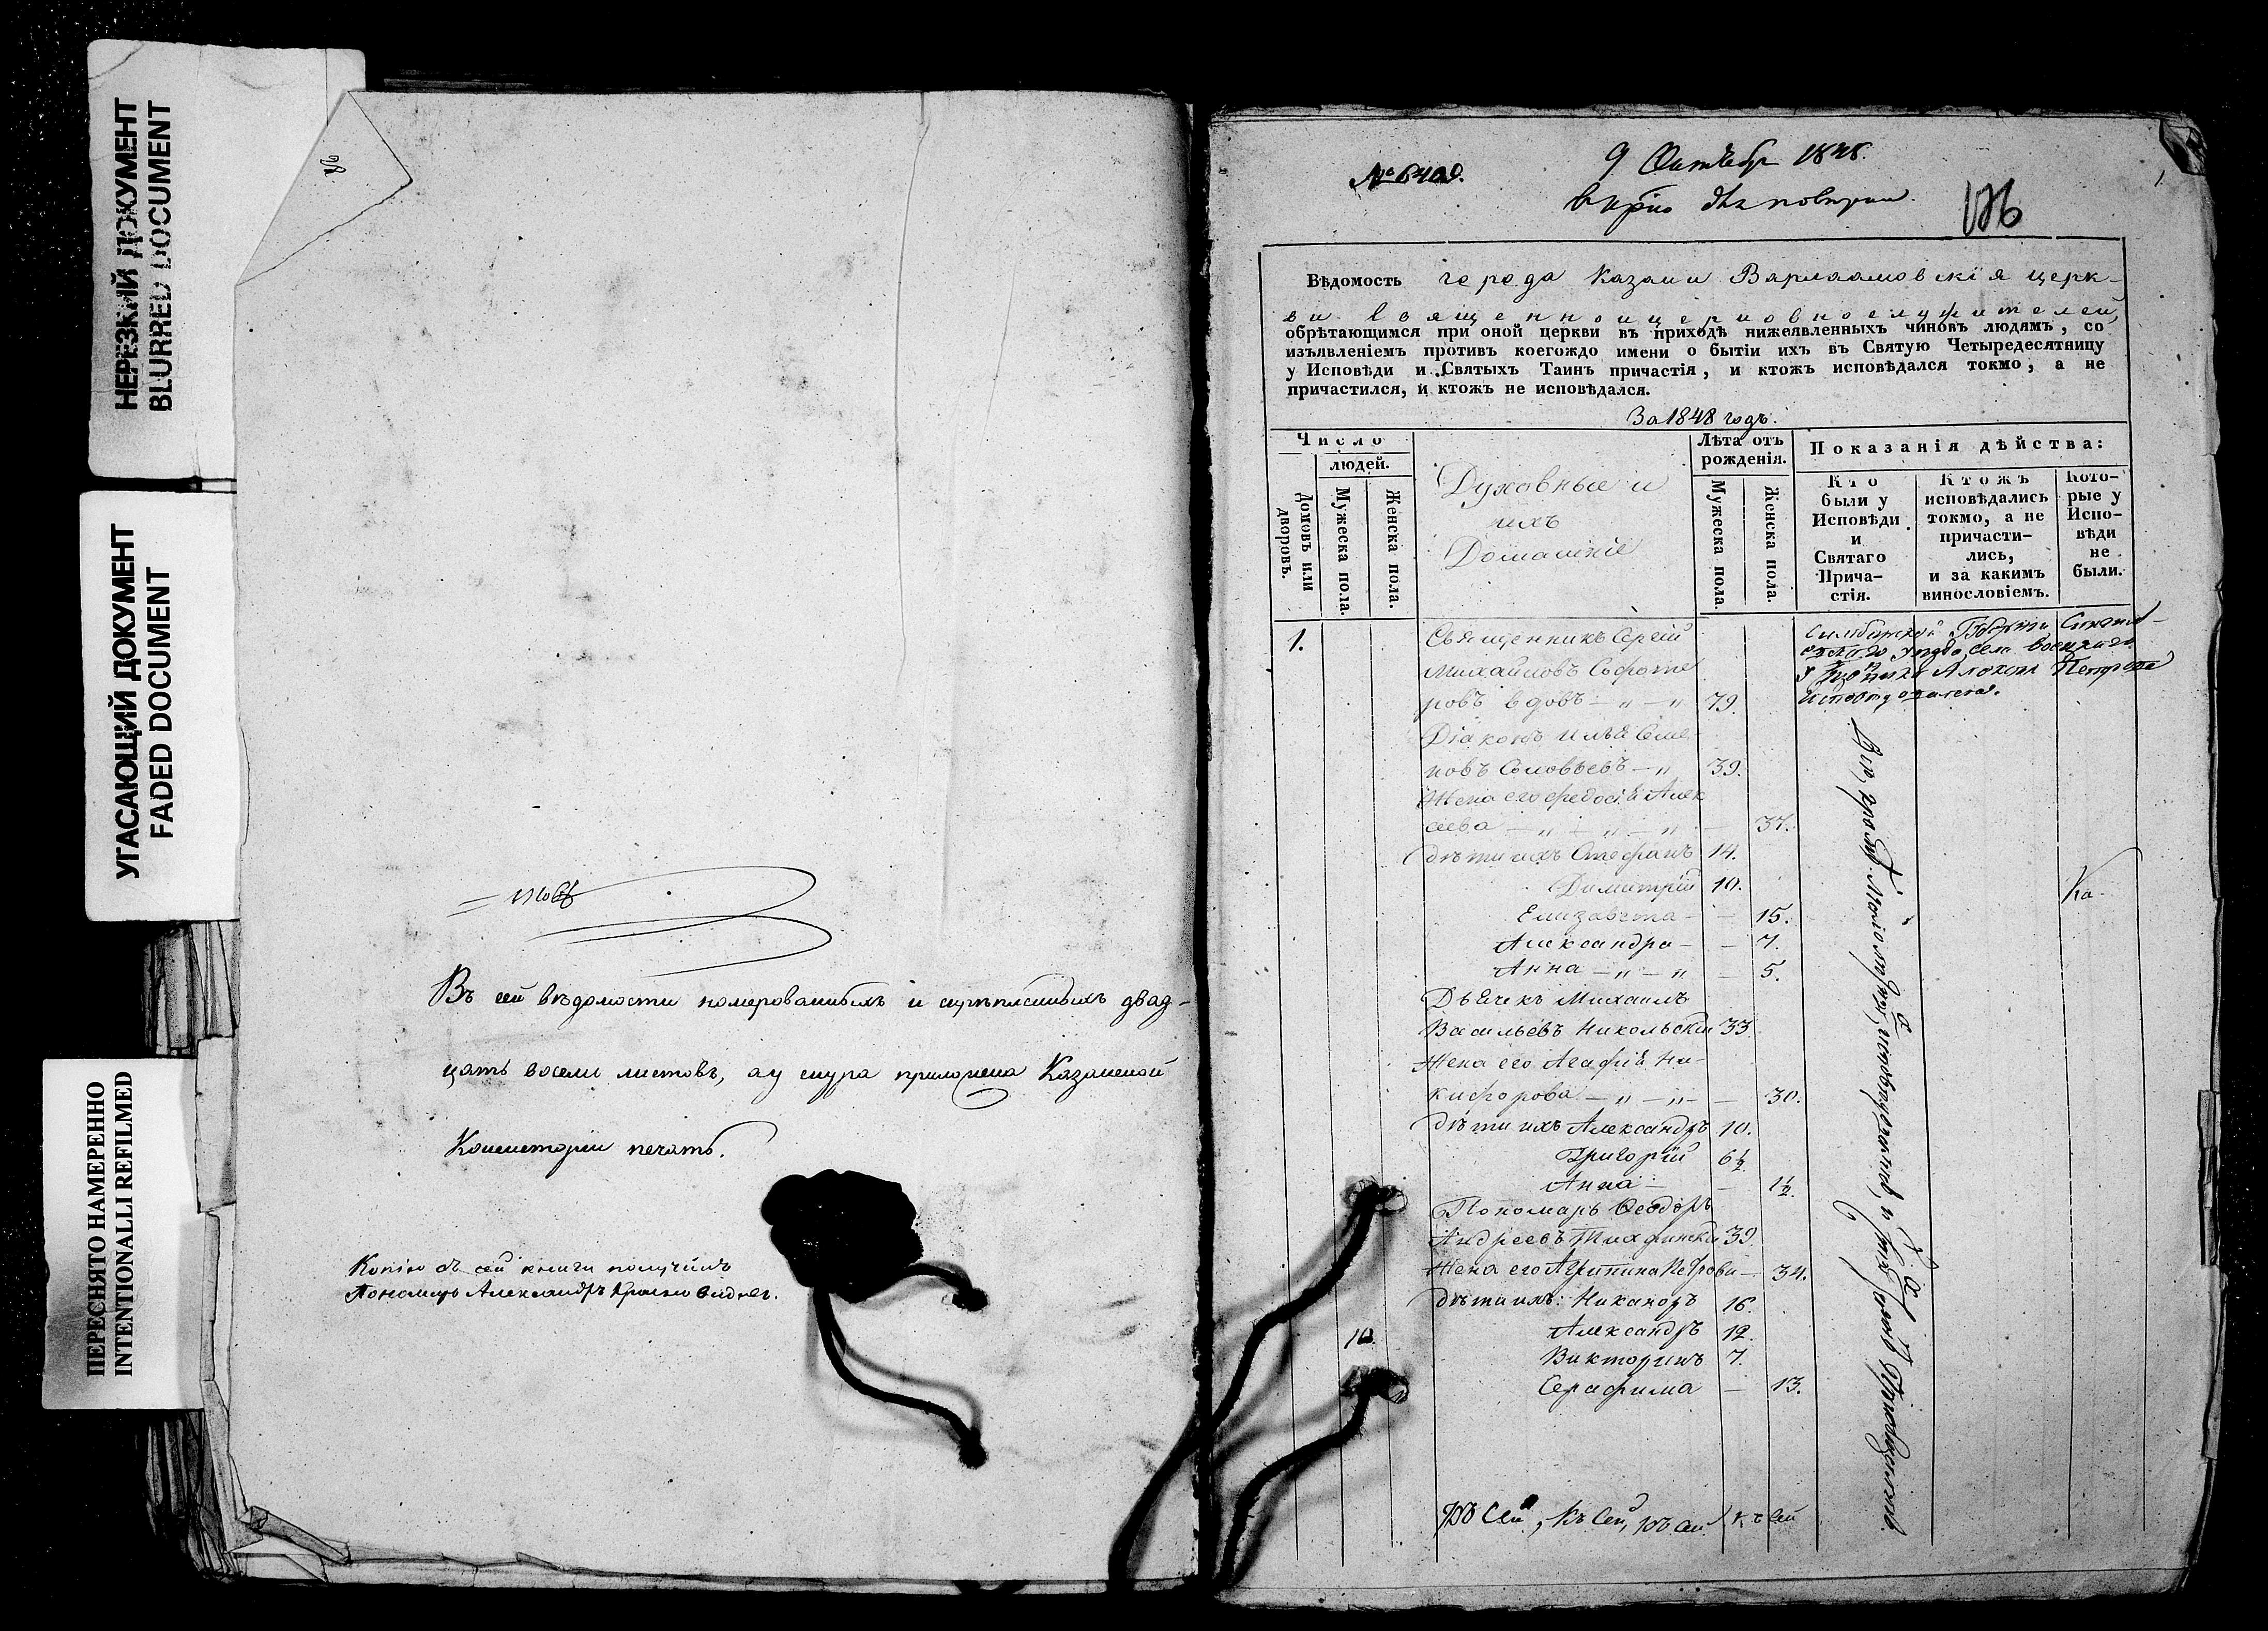 НЕРЕЗКИЙ ДОКУМЕНТ
BLURRED DOCUMENT
УГАСАЮЩИЙ ДОКУМЕНТ
FADED DOCUMENT
ПЕРЕСНЯТО НАМЕРЕННО
INTENTIONALLI REFILMED
28
Въ сей вѣдомости номерованныхъ и скрѣпленныхъ двад-
цать восемь листовъ, а у шнура приложена Казанской
Консисторіи печать.
Копію съ сей книги получилъ
Пономарь Александръ
9 Октября 1848.
126
Вѣдомость города Казани Варлаамовскія церк-
ви священноицерковнослужителей,
обрѣтающимся при оной церкви въ приходѣ нижеявленныхъ чиновъ людямъ, со
изъявленіемъ противъ коегождо имени о бытіи ихъ въ Святую Четыредесятницу
у Исповѣди и Святыхъ Таинъ причастія, и ктожъ исповѣдался токмо, а не
причастился, и ктожъ не исповѣдался.
За 1848 годъ.
Число
людей.
Домовъ или дворовъ.
Мужеска пола.
Женска пола.
Духовные и
ихъ
Домашніе
Лѣта отъ
рожденія.
Мужеска пола.
Женска пола.
Показанія дѣйства:
Кто
были у
Исповѣди
и
Святаго
Прича-
стія.
Ктожъ
исповѣдались
токмо, а не
причасти-
лись,
и за какимъ
винословіемъ.
Кото-
рые у
Испо-
вѣди
не
были.
1.
Священникъ Сергій
Михайловъ
ровъ вдовъ — „ — „ 79.
Діаконъ Илья Сте
новъ Соловьевъ — „ 39.
Жена его Ѳедосія Алек
сеева — „ — „ — „ — 37.
дѣти ихъ Стефанъ 14.
Димитрій 10.
Елизавета — — 15.
Александра — — 7.
Анна — „ — „ — 5.
Дьячекъ Михаилъ
Васильевъ Никольскій 33.
Жена его Агафія Ни-
кифорова — „ — „ — — 30.
дѣти ихъ Александръ 10.
Григорій 6½
Анна — — 1½.
Пономарь Ѳеодоръ
Андреевъ 39.
Жена его Агрипина Петрова — 34.
дѣти ихъ: Никаноръ 16.
Александръ 12.
Викторинъ 7.
Серафима — 13.
10.
Ка-
Къ сей, Къ сей, Къ сей, Къ сей